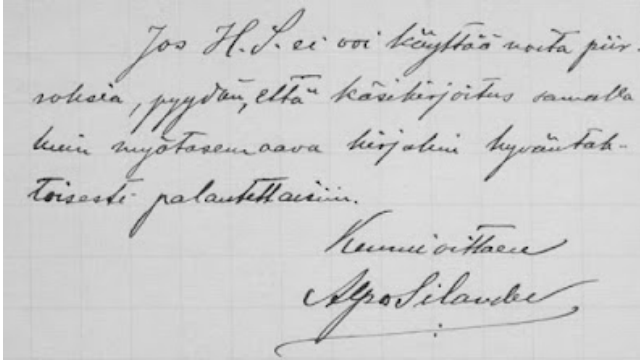 Jos H. S. ei voi käyttää noita piir-
roksia, pyydän, että käsikirjoitus samalla
kuin myötäseuraava kirjakin hyväntah-
toisesti palautettaisiin.
Kunnioittaen
Alpo Silander